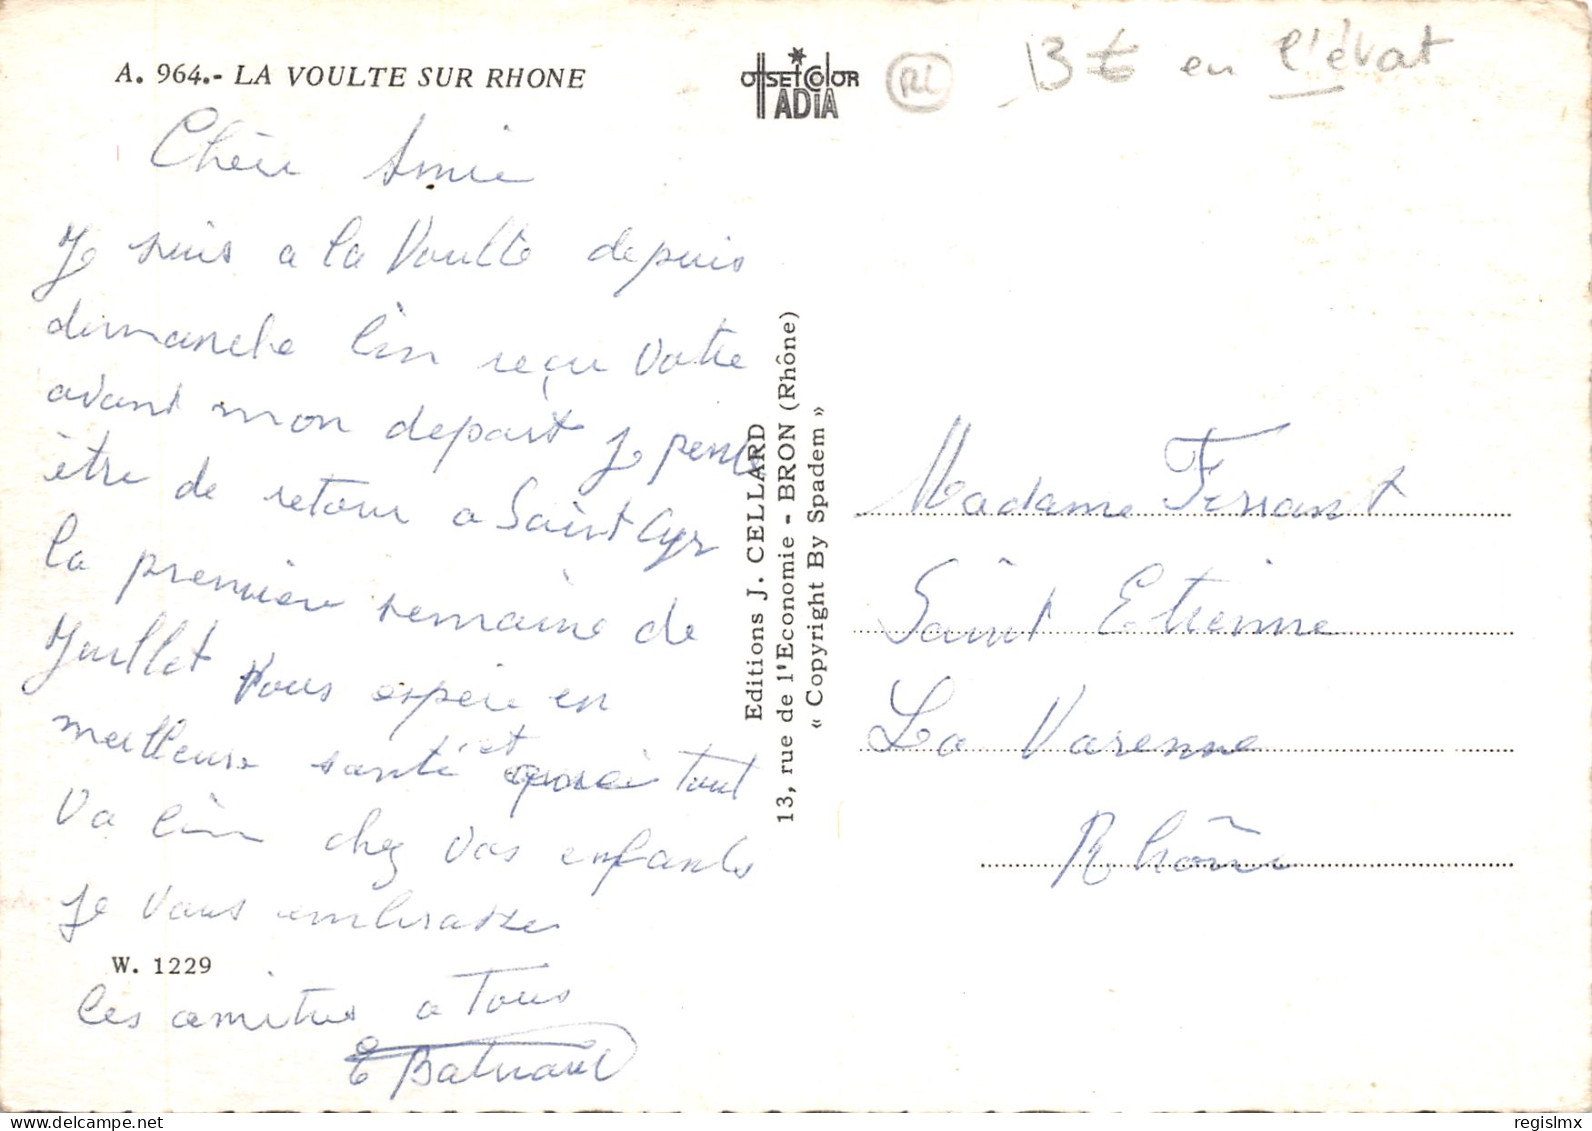 A. 964.- LA VOULTE SUR RHONE
OFFSET COLOR
ADIA
RL
13 € en l'état
Chère Amie
Je suis a la Voulte depuis
dimanche bien reçu votre
avant mon depart je pense
être de retour a Saint Cyr
la première semaine de
Juillet Vous espère en
meilleure santé et que tout
va bien chez vos enfants
je vous embrasse
W. 1229
les amities a Tous
E
Editions J. CELLARD
13, rue de l'Economie - BRON (Rhône)
« Copyright By Spadem »
Madame Ferrant
Saint Etienne
La Varenne
Rhône
regislmx